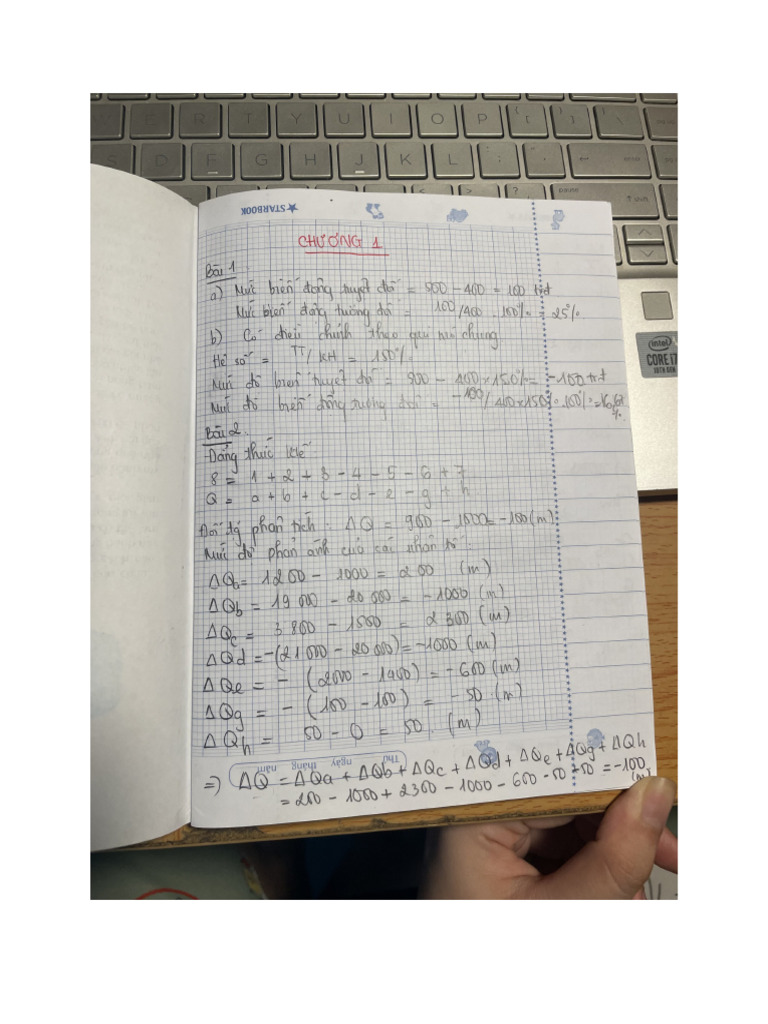 W E R T Y U I O P
S D F G H J K L
enter
pause
shift
intel
CORE i7
10TH GEN
★ STARBOOK
CHƯƠNG 1
Bài 1
a) Mức biến động tuyệt đối = 500 - 400 = 100 trđ
Mức biến động tương đối = 100/400 . 100% = 25%
b) Có điều chỉnh theo qui mô chung
Hệ số = TT/KH = 150%
Mức độ biến tuyệt đối = 500 - 400 x 150% = -100 trđ
Mức độ biến động tương đối = -100/400x150% . 100% = 16,67%
Bài 2.
Đẳng thức
8 = 1 + 2 + 3 - 4 - 5 - 6 + 7
Q = a + b + c - d - e - g + h
phân tích : ΔQ = 900 - 1000 = -100 (m)
Mức độ phản ánh của các nhân tố :
ΔQa = 1200 - 1000 = 200 (m)
ΔQb = 19 000 - 20 000 = -1000 (m)
ΔQc = 3 800 - 1500 = 2 300 (m)
ΔQd = -(21 000 - 20 000) = -1000 (m)
ΔQe = - (2000 - 1400) = -600 (m)
ΔQg = - ( - 100) = - 50 (m)
ΔQh = 50 - 0 = 50 (m)
Thứ ngày tháng năm
=> ΔQ = ΔQa + ΔQb + ΔQc + ΔQd + ΔQe + ΔQg + ΔQh
= 200 - 1000 + 2300 - 1000 - 600 - 50 + 50 = -100 (m)